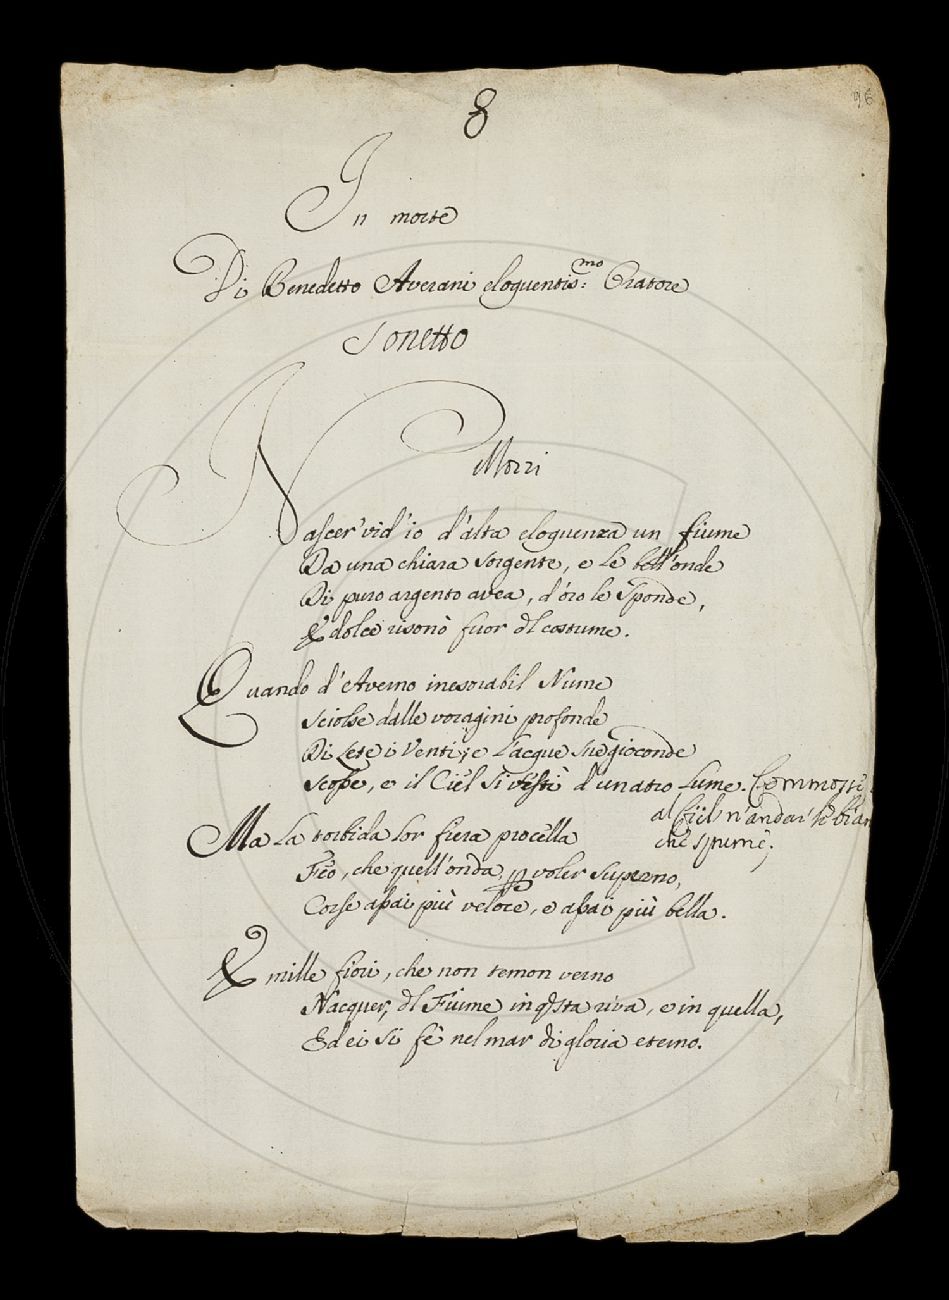 96
8
In morte
Di Benedetto Averani eloquentis:mo Oratore
Sonetto
Morri
Nascer vid'io d'alta eloquenza un fiume
Da una chiara sorgente, e le bell'onde
Di puro argento avea, d'oro le sponde,
E dolce risonò fuor dl costume.
Quando d'Averno inesorabil Nume
Sciolse dalle voragini profonde
Di Lete i Venti; e l'acque sue gioconde
Scosse, e il Ciel si vestì d'un atro lume. Commosse,
al Ciel n'andar' le bian
che spume;
Ma la torbida lor fiera procella
Feo, che quell'onda, p voler superno,
Corse assai più veloce, e assai più bella.
E mille fiori, che non temon verno
Nacquer, dl Fiume in qsta riva, e in quella,
Ed ei si fè nel mar di gloria eterno.